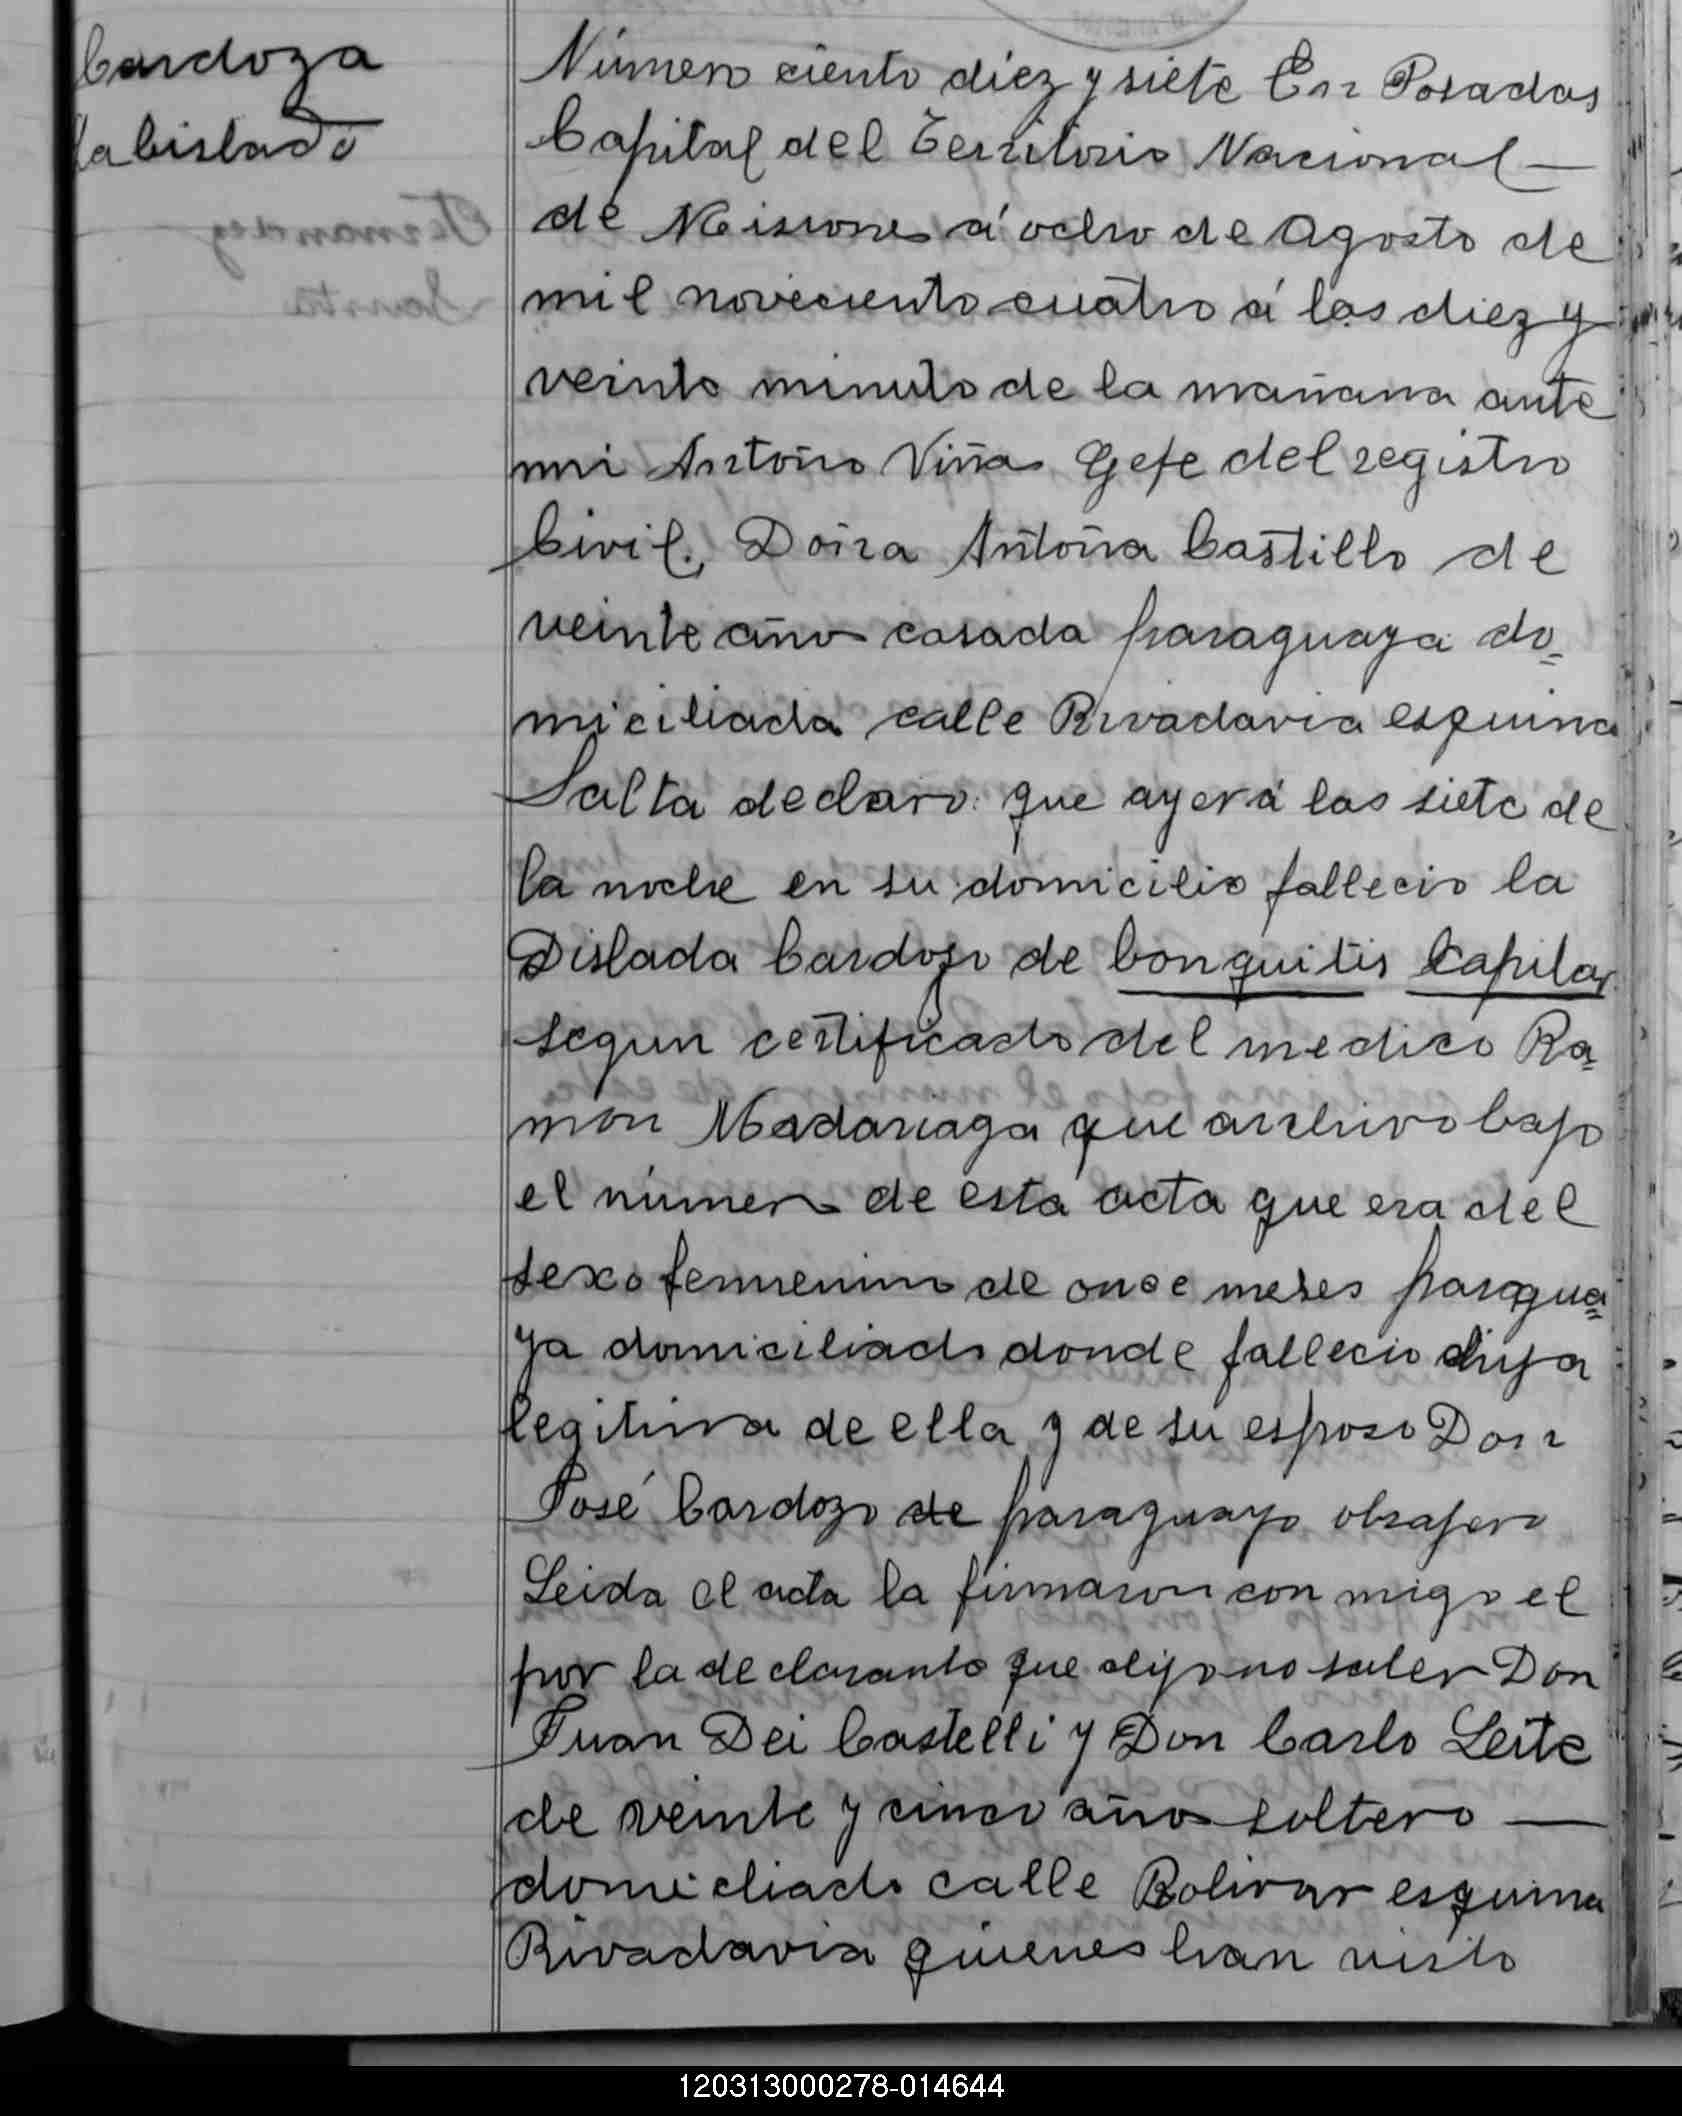 Cardoza
Número ciento diez y siete En Posadas
Capital del Territorio Nacional —
de Misiones á ocho de Agosto de
mil noveciento cuatro á las diez y
veinte minuto de la mañana ante
mi Antonio Viña Gefe del registro
Civil, Doña Antonia Castillo de
veinte año casada paraguaya do=
miciliada calle Rivadavia esquina
Salta declaro que ayer á las siete de
la noche en su domicilio fallecio la
Dislada Cardozo de bonquitis Capilar
segun certificado del medico Ra=
mon Madariaga que archivo bajo
el número de esta acta que era del
sexo femenino de once meses paragua=
ya domiciliado donde fallecio
legitima de ella y de su esposo Don
José Cardozo de paraguayo
Leida el acta la firmaron con migo el
por la declarante que dijo no saber Don
Juan Dei Castelli y Don Carlo Leite
de veinte y cinco años soltero —
domicliado calle Bolivar esquina
Rivadavia quienes han visto
120313000278-014644